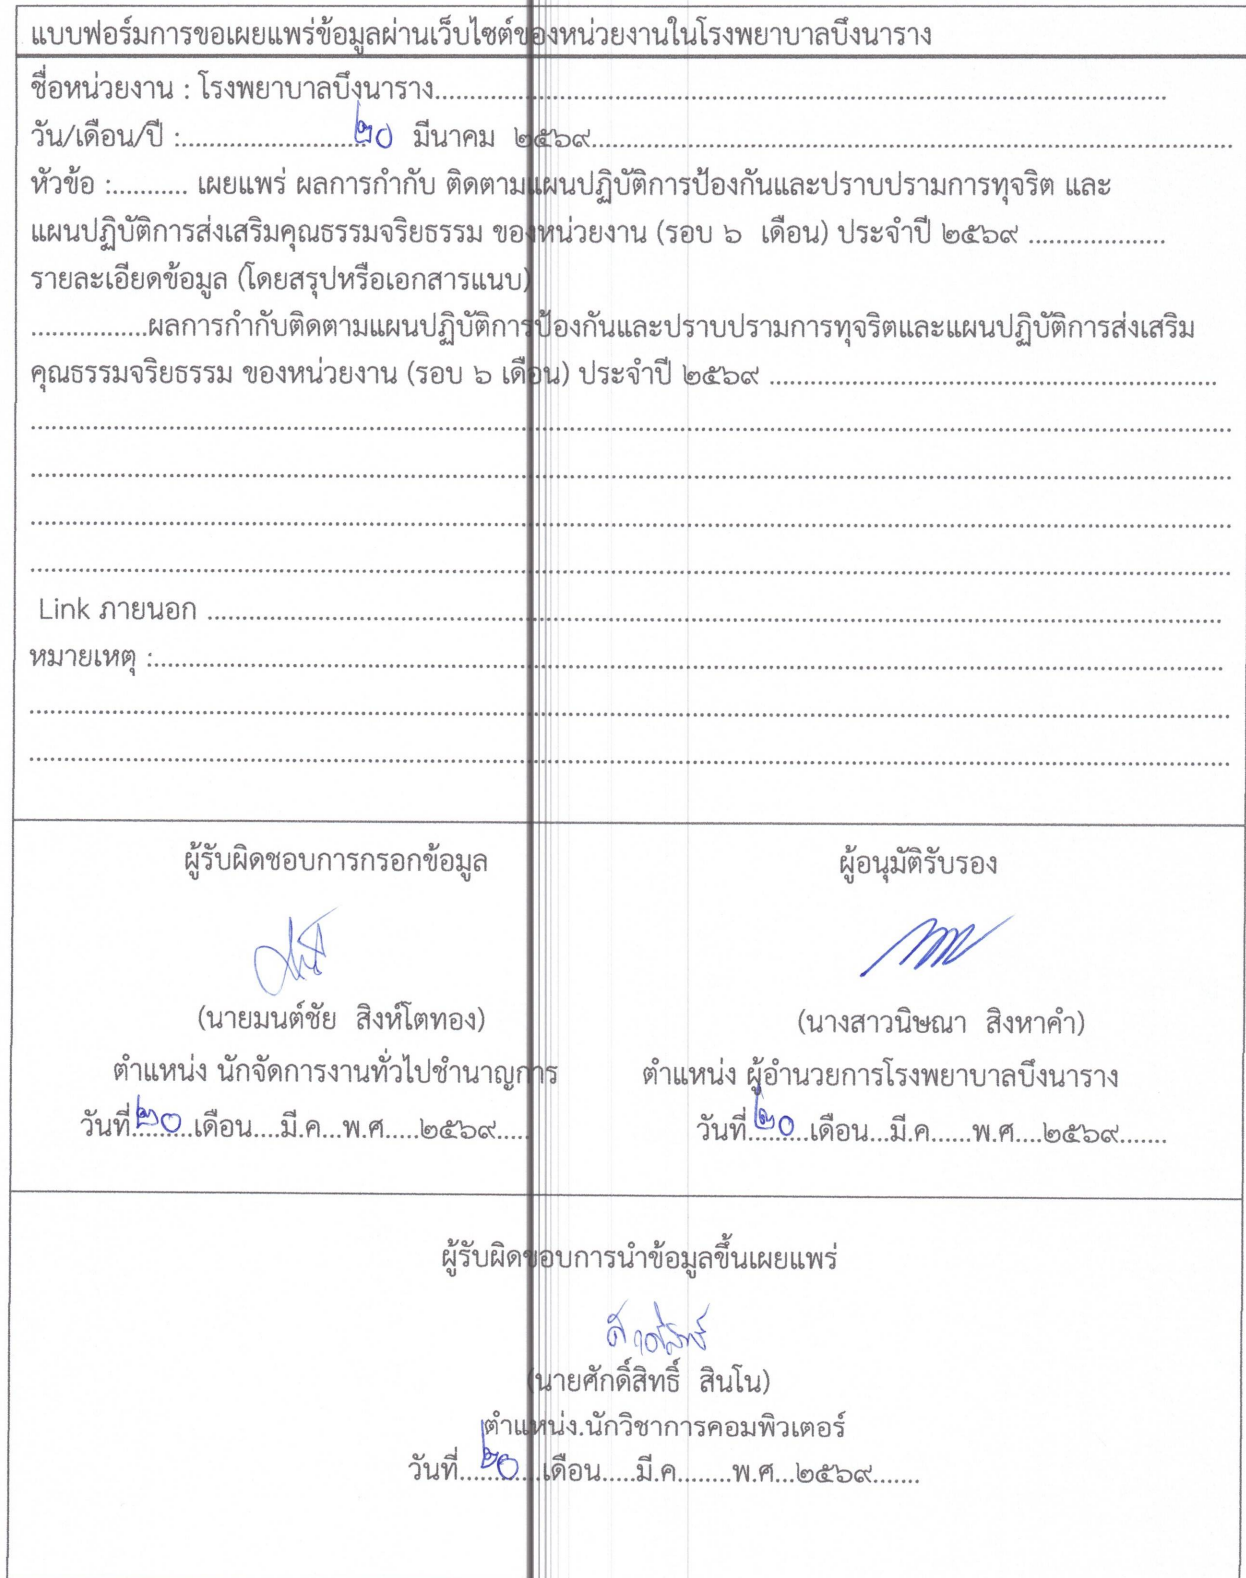 แบบฟอร์มการขอเผยแพร่ข้อมูลผ่านเว็บไซต์ของหน่วยงานในโรงพยาบาลบึงนาราง
ชื่อหน่วยงาน : โรงพยาบาลบึงนาราง..........
วัน/เดือน/ปี :..........๒๐ มีนาคม ๒๕๖๙..........
หัวข้อ :.......... เผยแพร่ ผลการกำกับ ติดตามแผนปฏิบัติการป้องกันและปราบปรามการทุจริต และ
แผนปฏิบัติการส่งเสริมคุณธรรมจริยธรรม ของหน่วยงาน (รอบ ๖ เดือน) ประจำปี ๒๕๖๙ ..........
รายละเอียดข้อมูล (โดยสรุปหรือเอกสารแนบ)
..........ผลการกำกับติดตามแผนปฏิบัติการป้องกันและปราบปรามการทุจริตและแผนปฏิบัติการส่งเสริม
คุณธรรมจริยธรรม ของหน่วยงาน (รอบ ๖ เดือน) ประจำปี ๒๕๖๙ ..........
Link ภายนอก ..........
หมายเหตุ :..........
ผู้รับผิดชอบการกรอกข้อมูล
(นายมนต์ชัย สิงห์โตทอง)
ตำแหน่ง นักจัดการงานทั่วไปชำนาญการ
วันที่..๒๐..เดือน....มี.ค...พ.ศ.....๒๕๖๙.....
ผู้อนุมัติรับรอง
(นางสาวนิษณา สิงหาคำ)
ตำแหน่ง ผู้อำนวยการโรงพยาบาลบึงนาราง
วันที่..๒๐..เดือน...มี.ค......พ.ศ....๒๕๖๙.......
ผู้รับผิดชอบการนำข้อมูลขึ้นเผยแพร่
ศักดิ์สิทธิ์
(นายศักดิ์สิทธิ์ สินโน)
ตำแหน่ง.นักวิชาการคอมพิวเตอร์
วันที่....๒๐...เดือน.....มี.ค........พ.ศ...๒๕๖๙.......